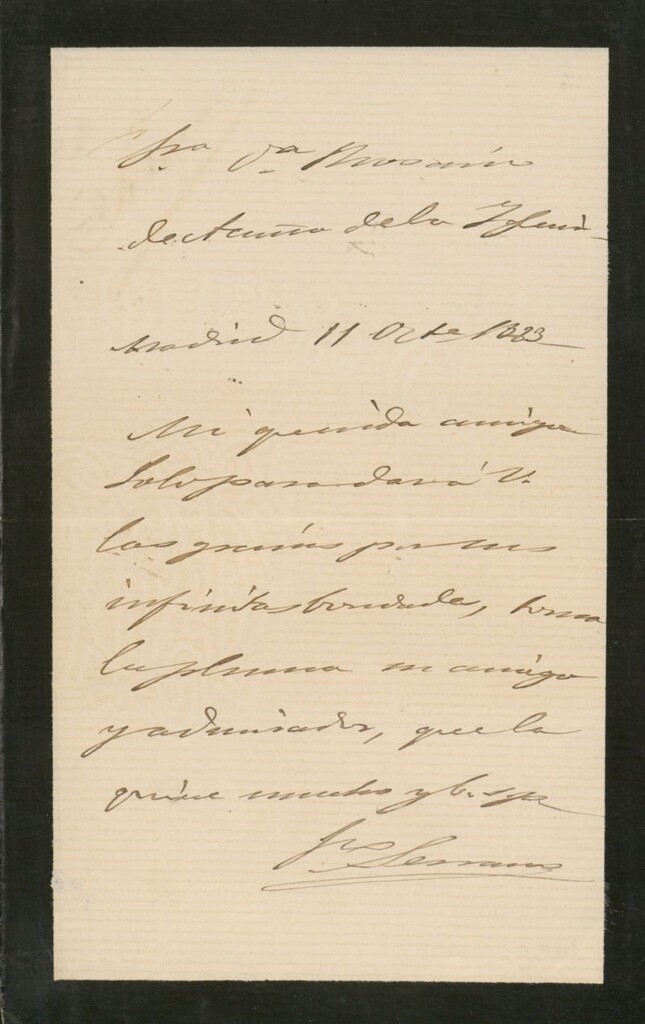 Sra Da Rosario
de Acuña de la Iglesia
Madrid 11 Oct.e 1883
Mi querida amiga
Solo para dar á V.
las gracias por sus
infinitas bondades, toma
la pluma su amigo
y admirador, que la
quiere mucho y b. s. p.
Fco Serrano